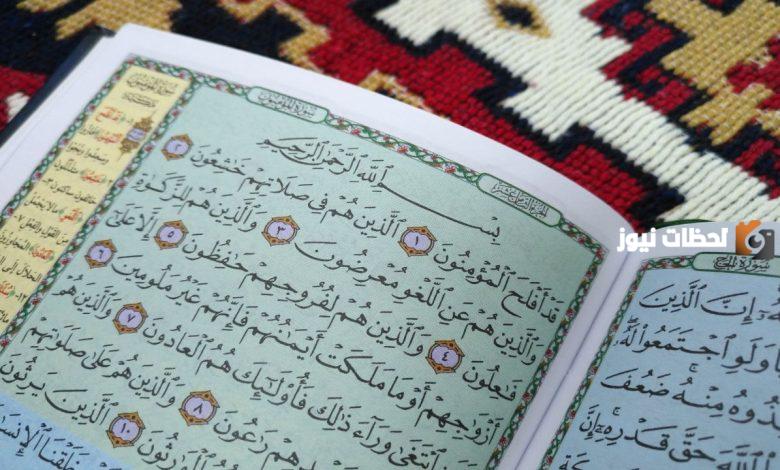 سُورَةُ المؤمنون
الجزء الثامن عشر
بِسْمِ ٱللَّهِ ٱلرَّحْمَٰنِ ٱلرَّحِيمِ
قَدْ أَفْلَحَ ٱلْمُؤْمِنُونَ ١ ٱلَّذِينَ هُمْ فِى صَلَاتِهِمْ خَٰشِعُونَ ٢
وَٱلَّذِينَ هُمْ عَنِ ٱللَّغْوِ مُعْرِضُونَ ٣ وَٱلَّذِينَ هُمْ لِلزَّكَوٰةِ
فَٰعِلُونَ ٤ وَٱلَّذِينَ هُمْ لِفُرُوجِهِمْ حَٰفِظُونَ ٥ إِلَّا عَلَىٰٓ
أَزْوَٰجِهِمْ أَوْ مَا مَلَكَتْ أَيْمَٰنُهُمْ فَإِنَّهُمْ غَيْرُ مَلُومِينَ ٦
ٱبْتَغَىٰ وَرَآءَ ذَٰلِكَ فَأُو۟لَٰٓئِكَ هُمُ ٱلْعَادُونَ ٧ وَٱلَّذِينَ هُمْ
رَٰعُونَ ٨ وَٱلَّذِينَ هُمْ عَلَىٰ صَلَوَٰتِهِمْ
ٱلْوَٰرِثُونَ ١٠ ٱلَّذِينَ يَرِثُونَ
خَلَقْنَا ٱلْإِنسَ
سُورَةُ الحج
إِنَّ ٱلَّذِينَ
وَلَوِ ٱجْتَمَعُوا۟ لَهُۥ
مِنْهُ ۚ ضَعُفَ
حَقَّ قَدْرِهِۦٓ ۗ إِنَّ
لحظات نيوز